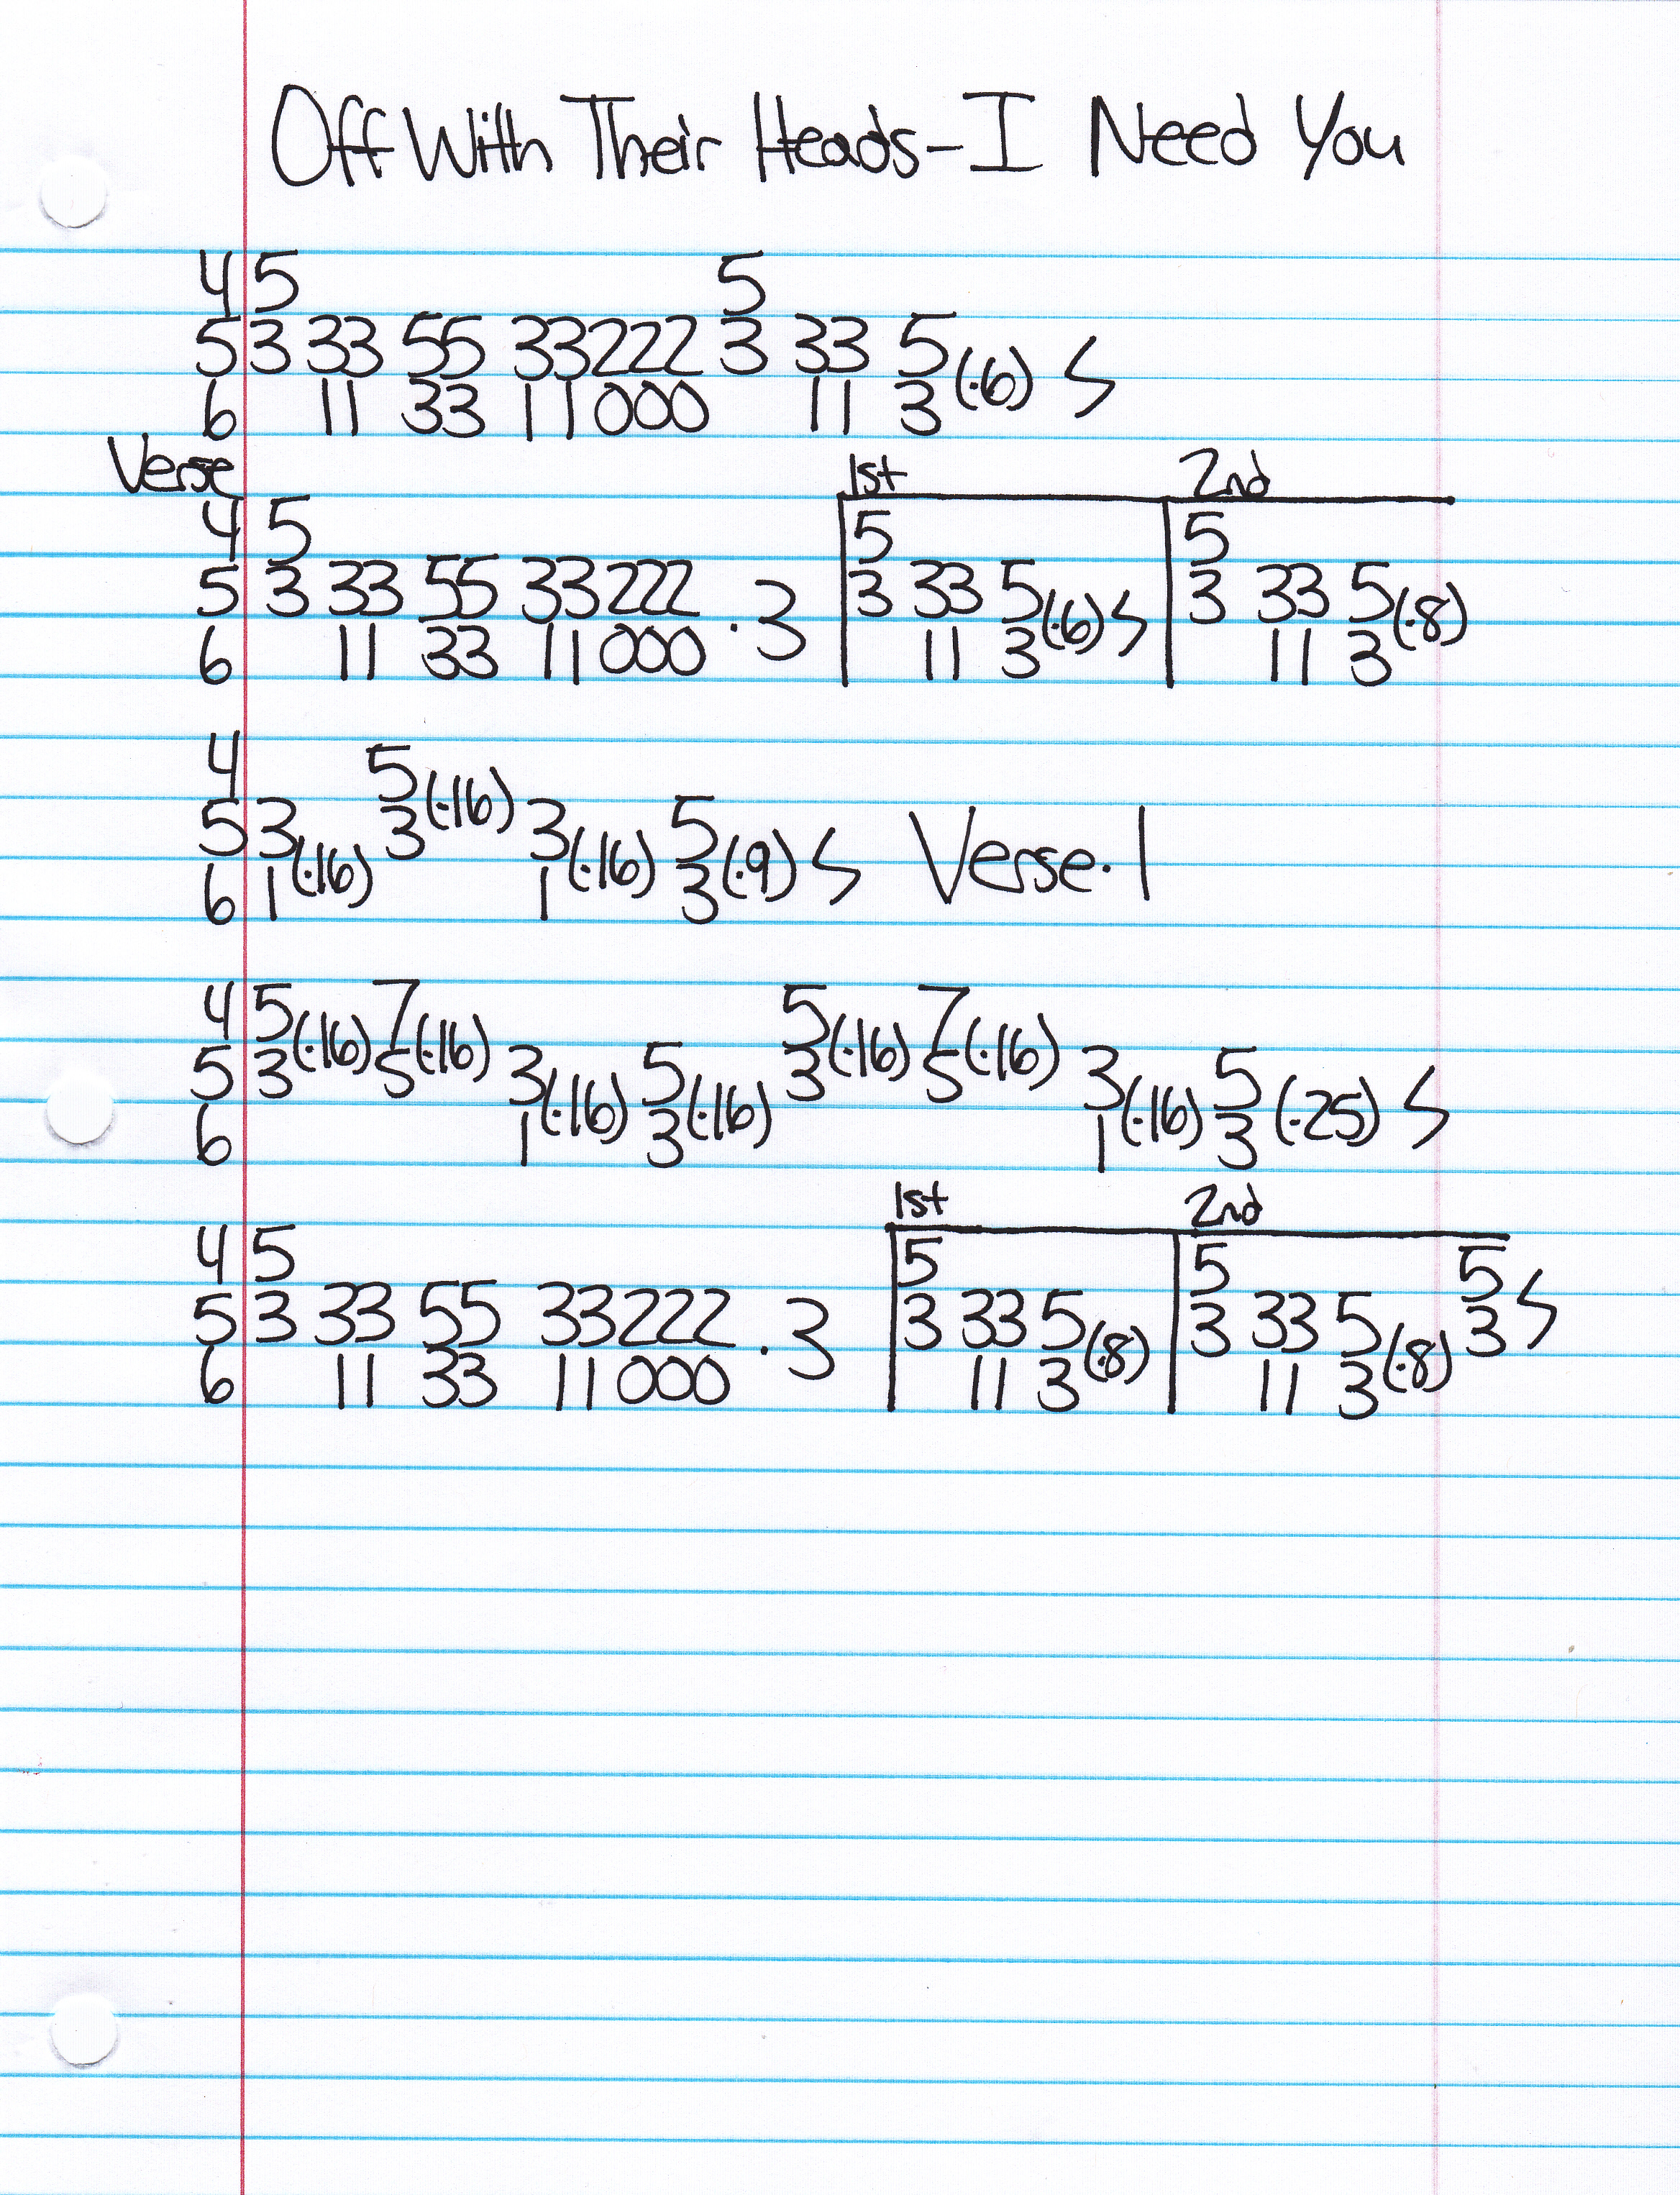 Off With Their Heads - I Need You
4 5 5
5 3 33 55 33222 3 33 5 (·6) S
6 11 33 11000 11 3
Verse 1st 2nd
4 5 5 5
5 3 33 55 33222 ·3 3 33 5 (·6) S 3 33 5 (·8)
6 11 33 11000 11 3 11 3
4 5 (·16)
5 3 (·16) 3 3 (·16) 5 (·9) S Verse·1
6 1 1 3
4 5 (·16) 7 (·16) 5 (·16) 7 (·16)
5 3 5 3 (·16) 5 (·16) 3 5 3 (·16) 5 (·25) S
6 1 3 1 3
1st 2nd
4 5 5 5 5
5 3 33 55 33222 ·3 3 33 5 (·8) 3 33 5 (·8) 3 S
6 11 33 11000 11 3 11 3